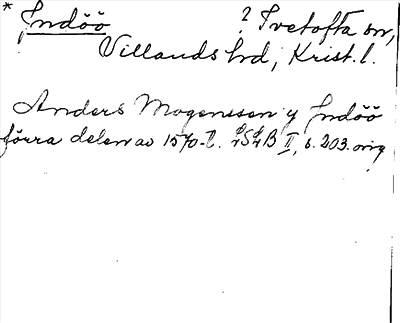 * Indöö ? Ivetofta sn,
Villands hd, Krist. l.
Anders Mogenssen y Indöö
förra delen av 1570-t. II, s. 203. orig